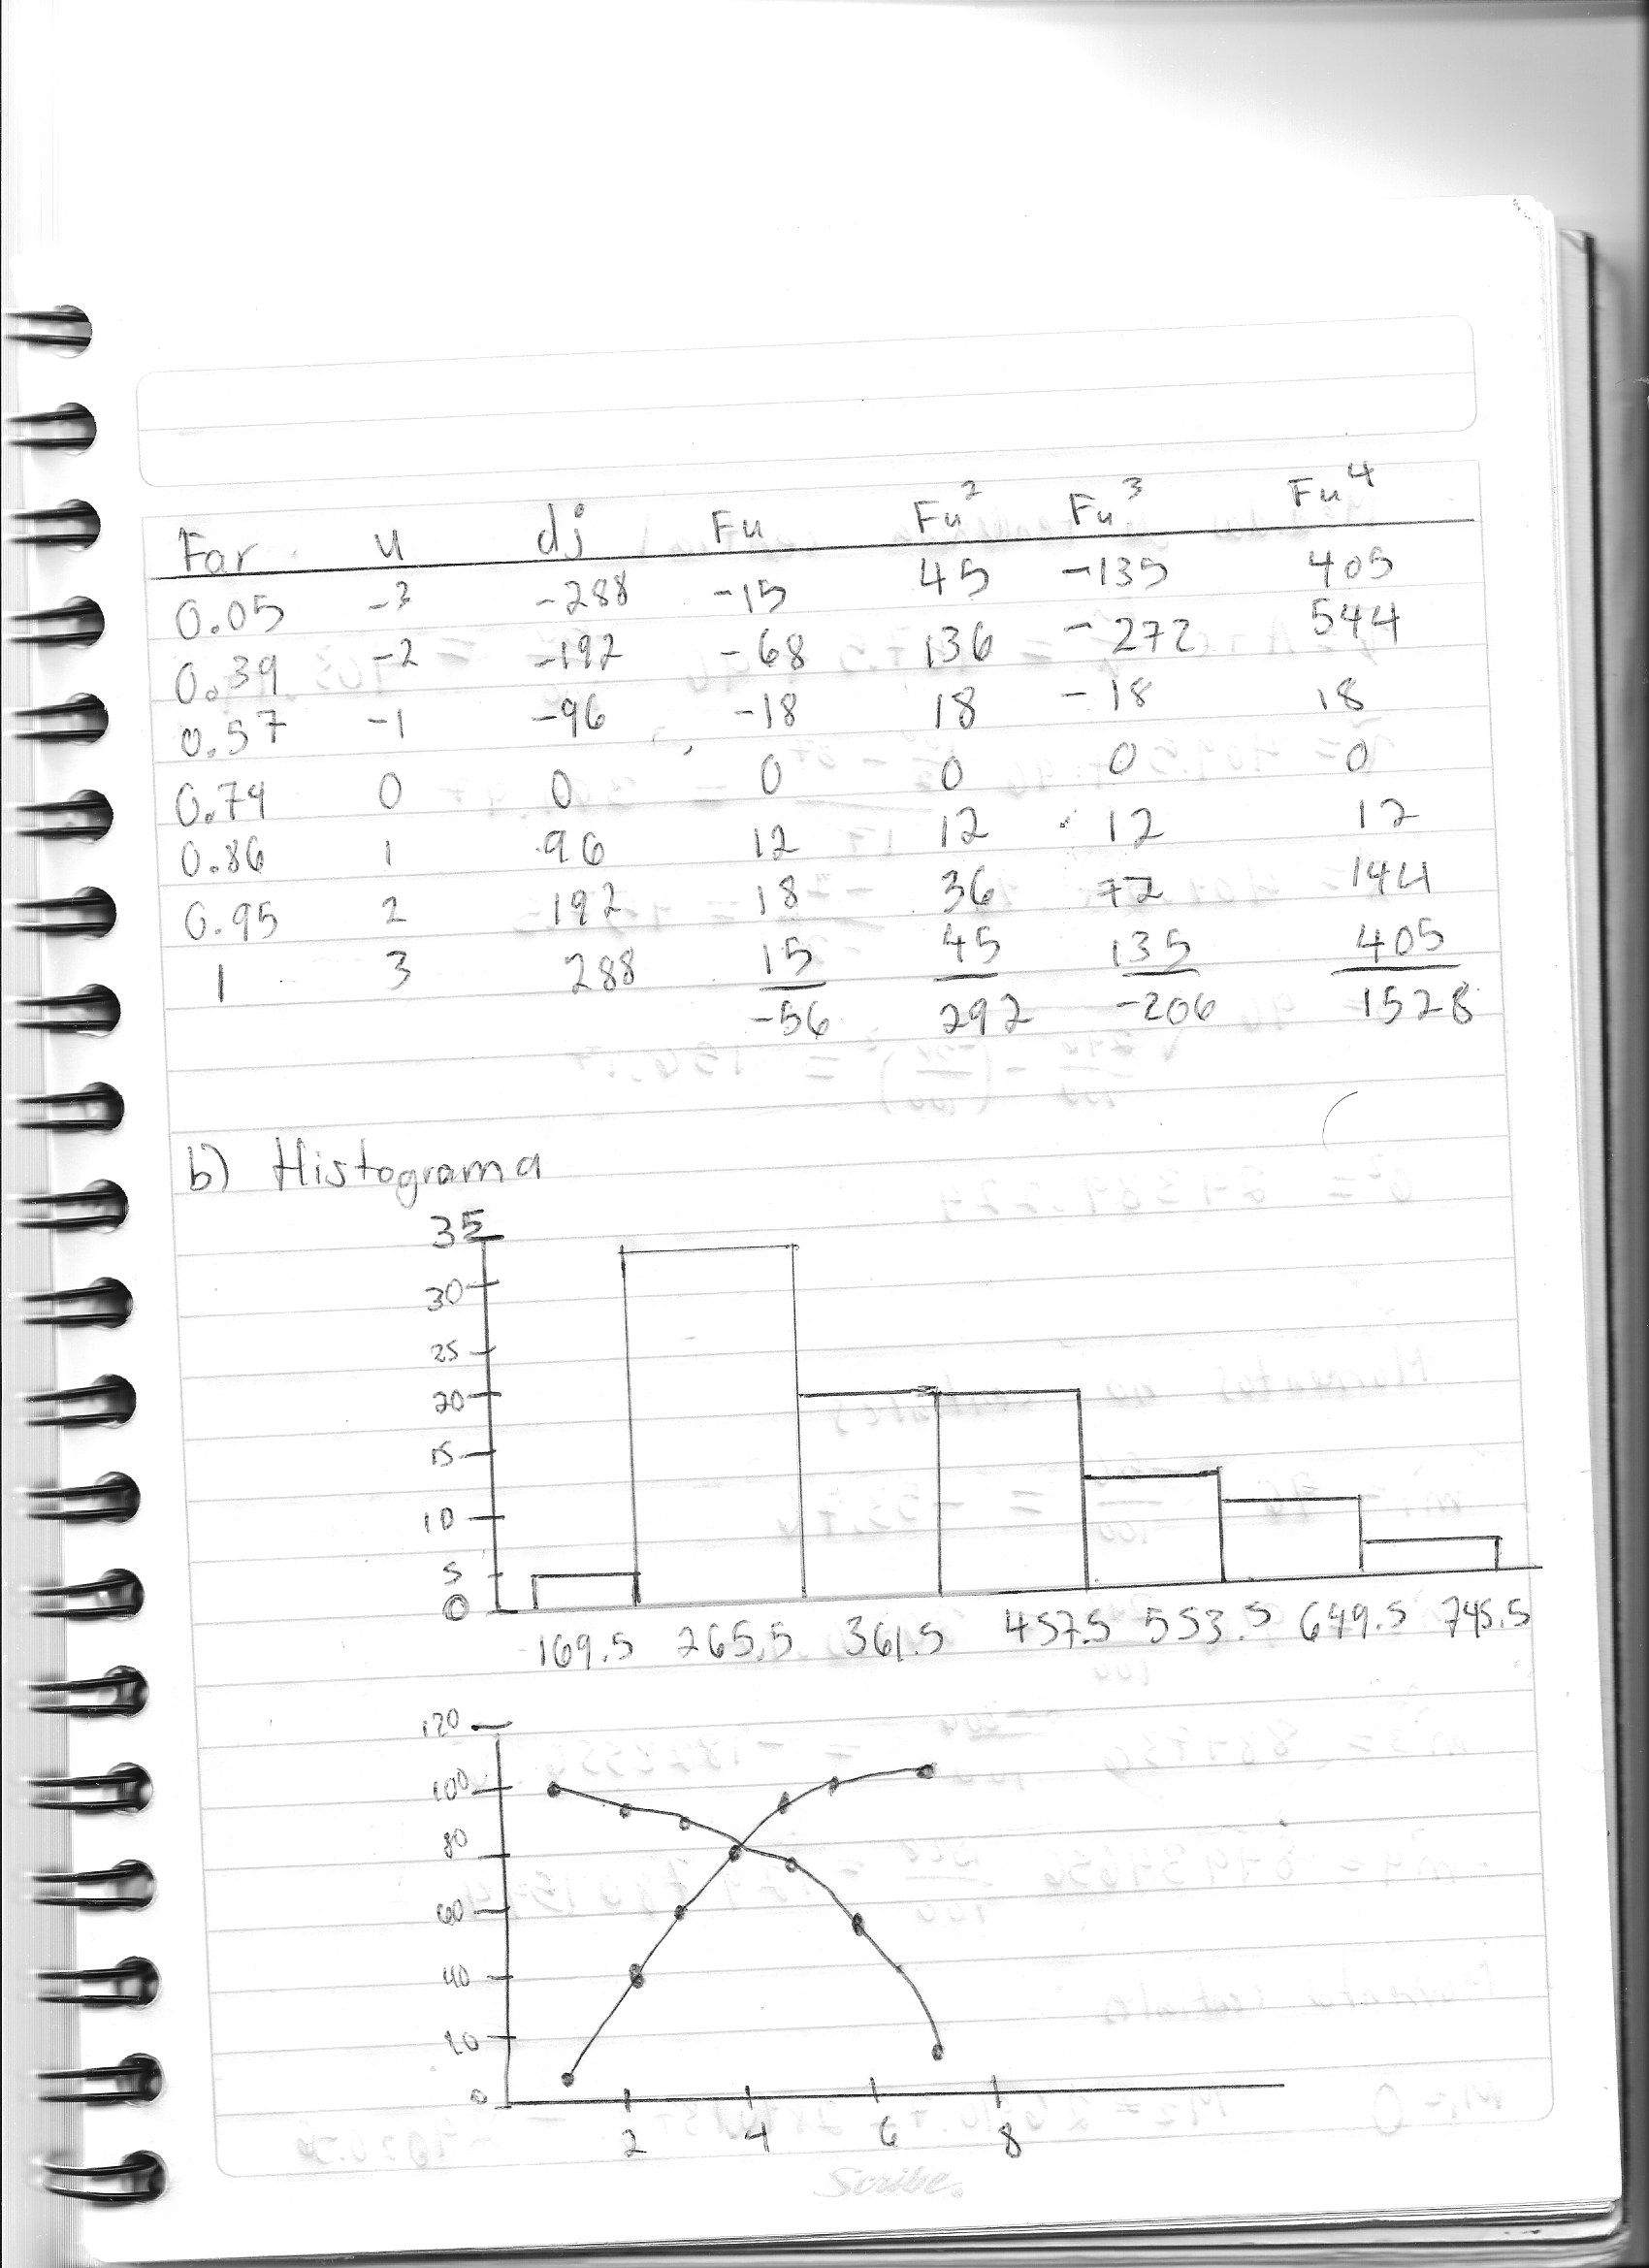 Far u dj Fu Fu² Fu³ Fu⁴
0.05 -3 -288 -15 45 -135 405
0.39 -2 -192 -68 136 -272 544
0.57 -1 -96 -18 18 -18 18
0.74 0 0 0 0 0 0
0.86 1 96 12 12 12 12
0.95 2 192 18 36 72 144
1 3 288 15 45 135 405
-56 292 -206 1528
b) Histograma
35
30
25
20
15
10
5
0
169.5 265.5 361.5 457.5 553.5 649.5 745.5
120
100
80
60
40
20
0
2 4 6 8
Scribe.